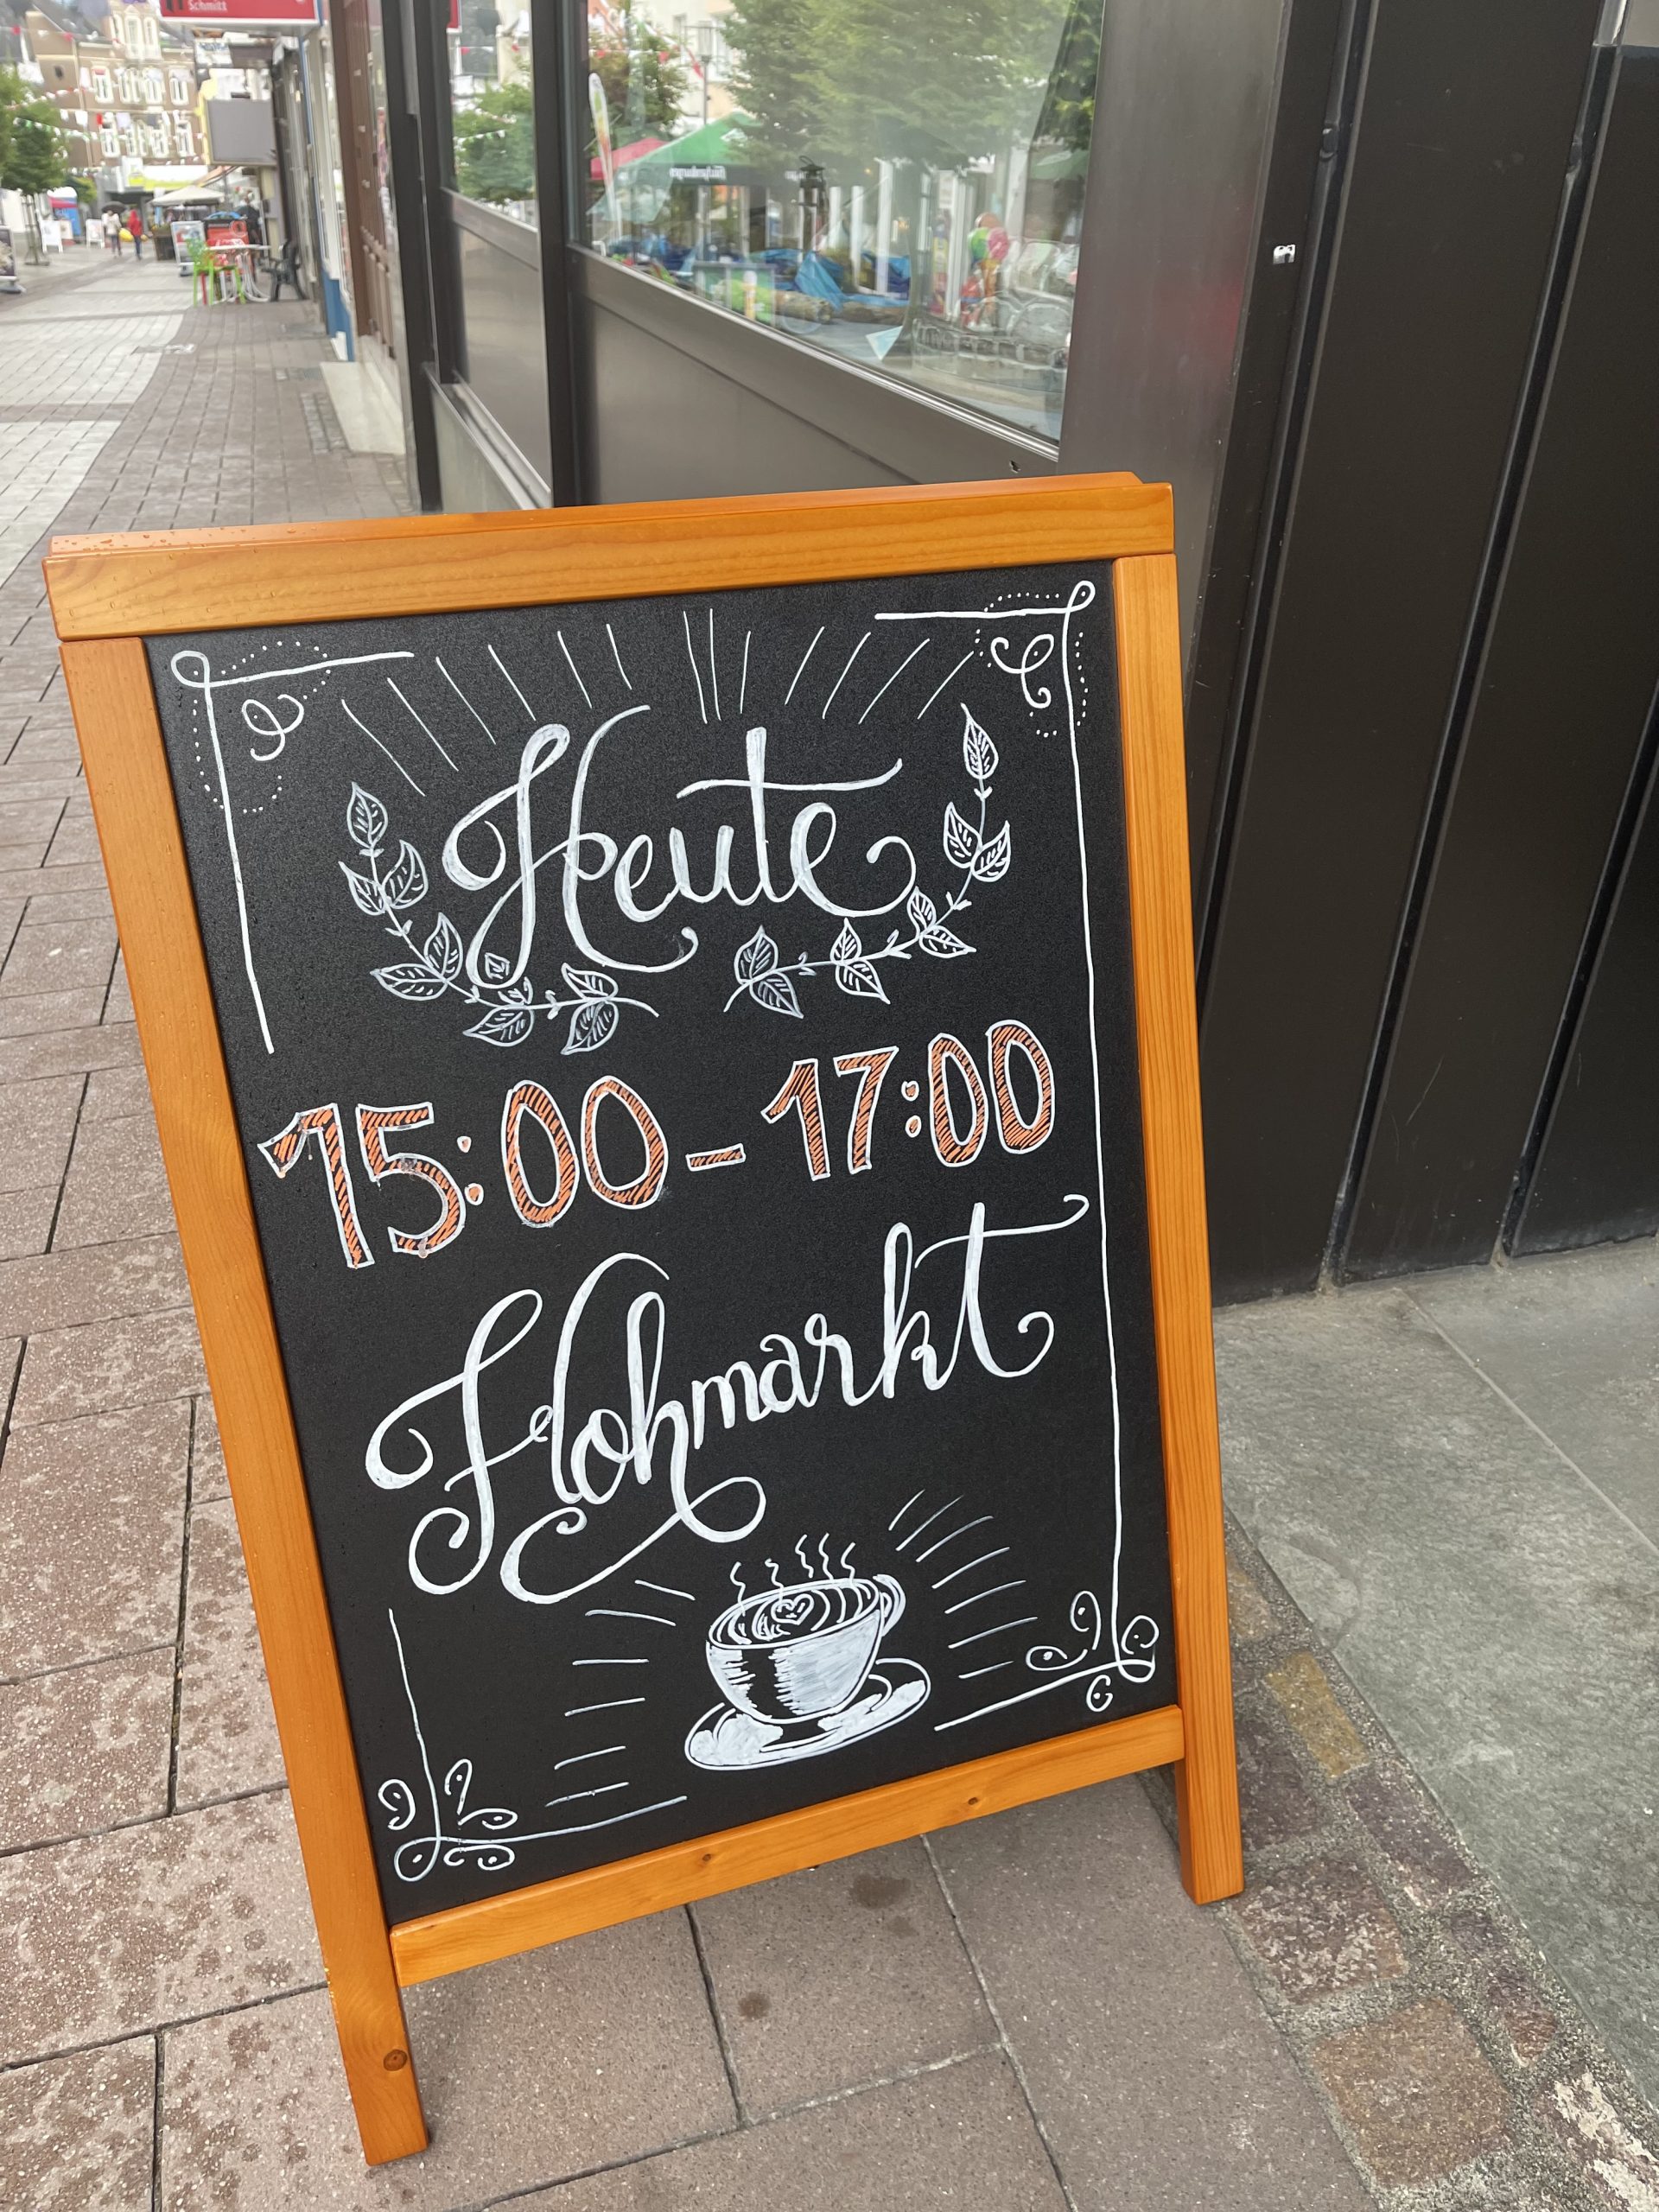 Schmitt
Heute
15:00-17:00
Flohmarkt